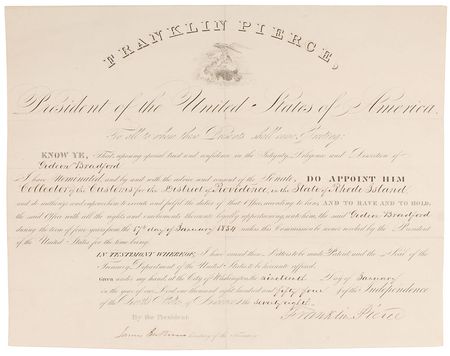 FRANKLIN PIERCE,
President of the United States of America.
To all to whom these Presents shall come, Greeting:
KNOW YE, That reposing special trust and confidence in the Integrity, Diligence and Discretion of
Gideon Bradford
I have Nominated, and by and with the advice and consent of the Senate, DO APPOINT HIM
Collector of the Customs for the District of Providence, in the State of Rhode Island
and do authorize and empower him to execute and fulfil the duties of that Office according to law; AND TO HAVE AND TO HOLD,
the said Office with all the rights and emoluments thereunto legally appertaining unto him, the said Gideon Bradford
during the term of four years from the 17th day of January 1854 unless this Commission be sooner revoked by the President
of the United States for the time being.
IN TESTIMONY WHEREOF, I have caused these Letters to be made Patent and the Seal of the
Treasury Department of the United States to be hereunto affixed.
Given under my hand, at the City of Washington the nineteenth Day of January
in the year of our Lord one thousand eight hundred and fifty four & of the Independence
of the United States of America the seventy eighth.
Franklin Pierce
By the President.
James Guthrie Secretary of the Treasury